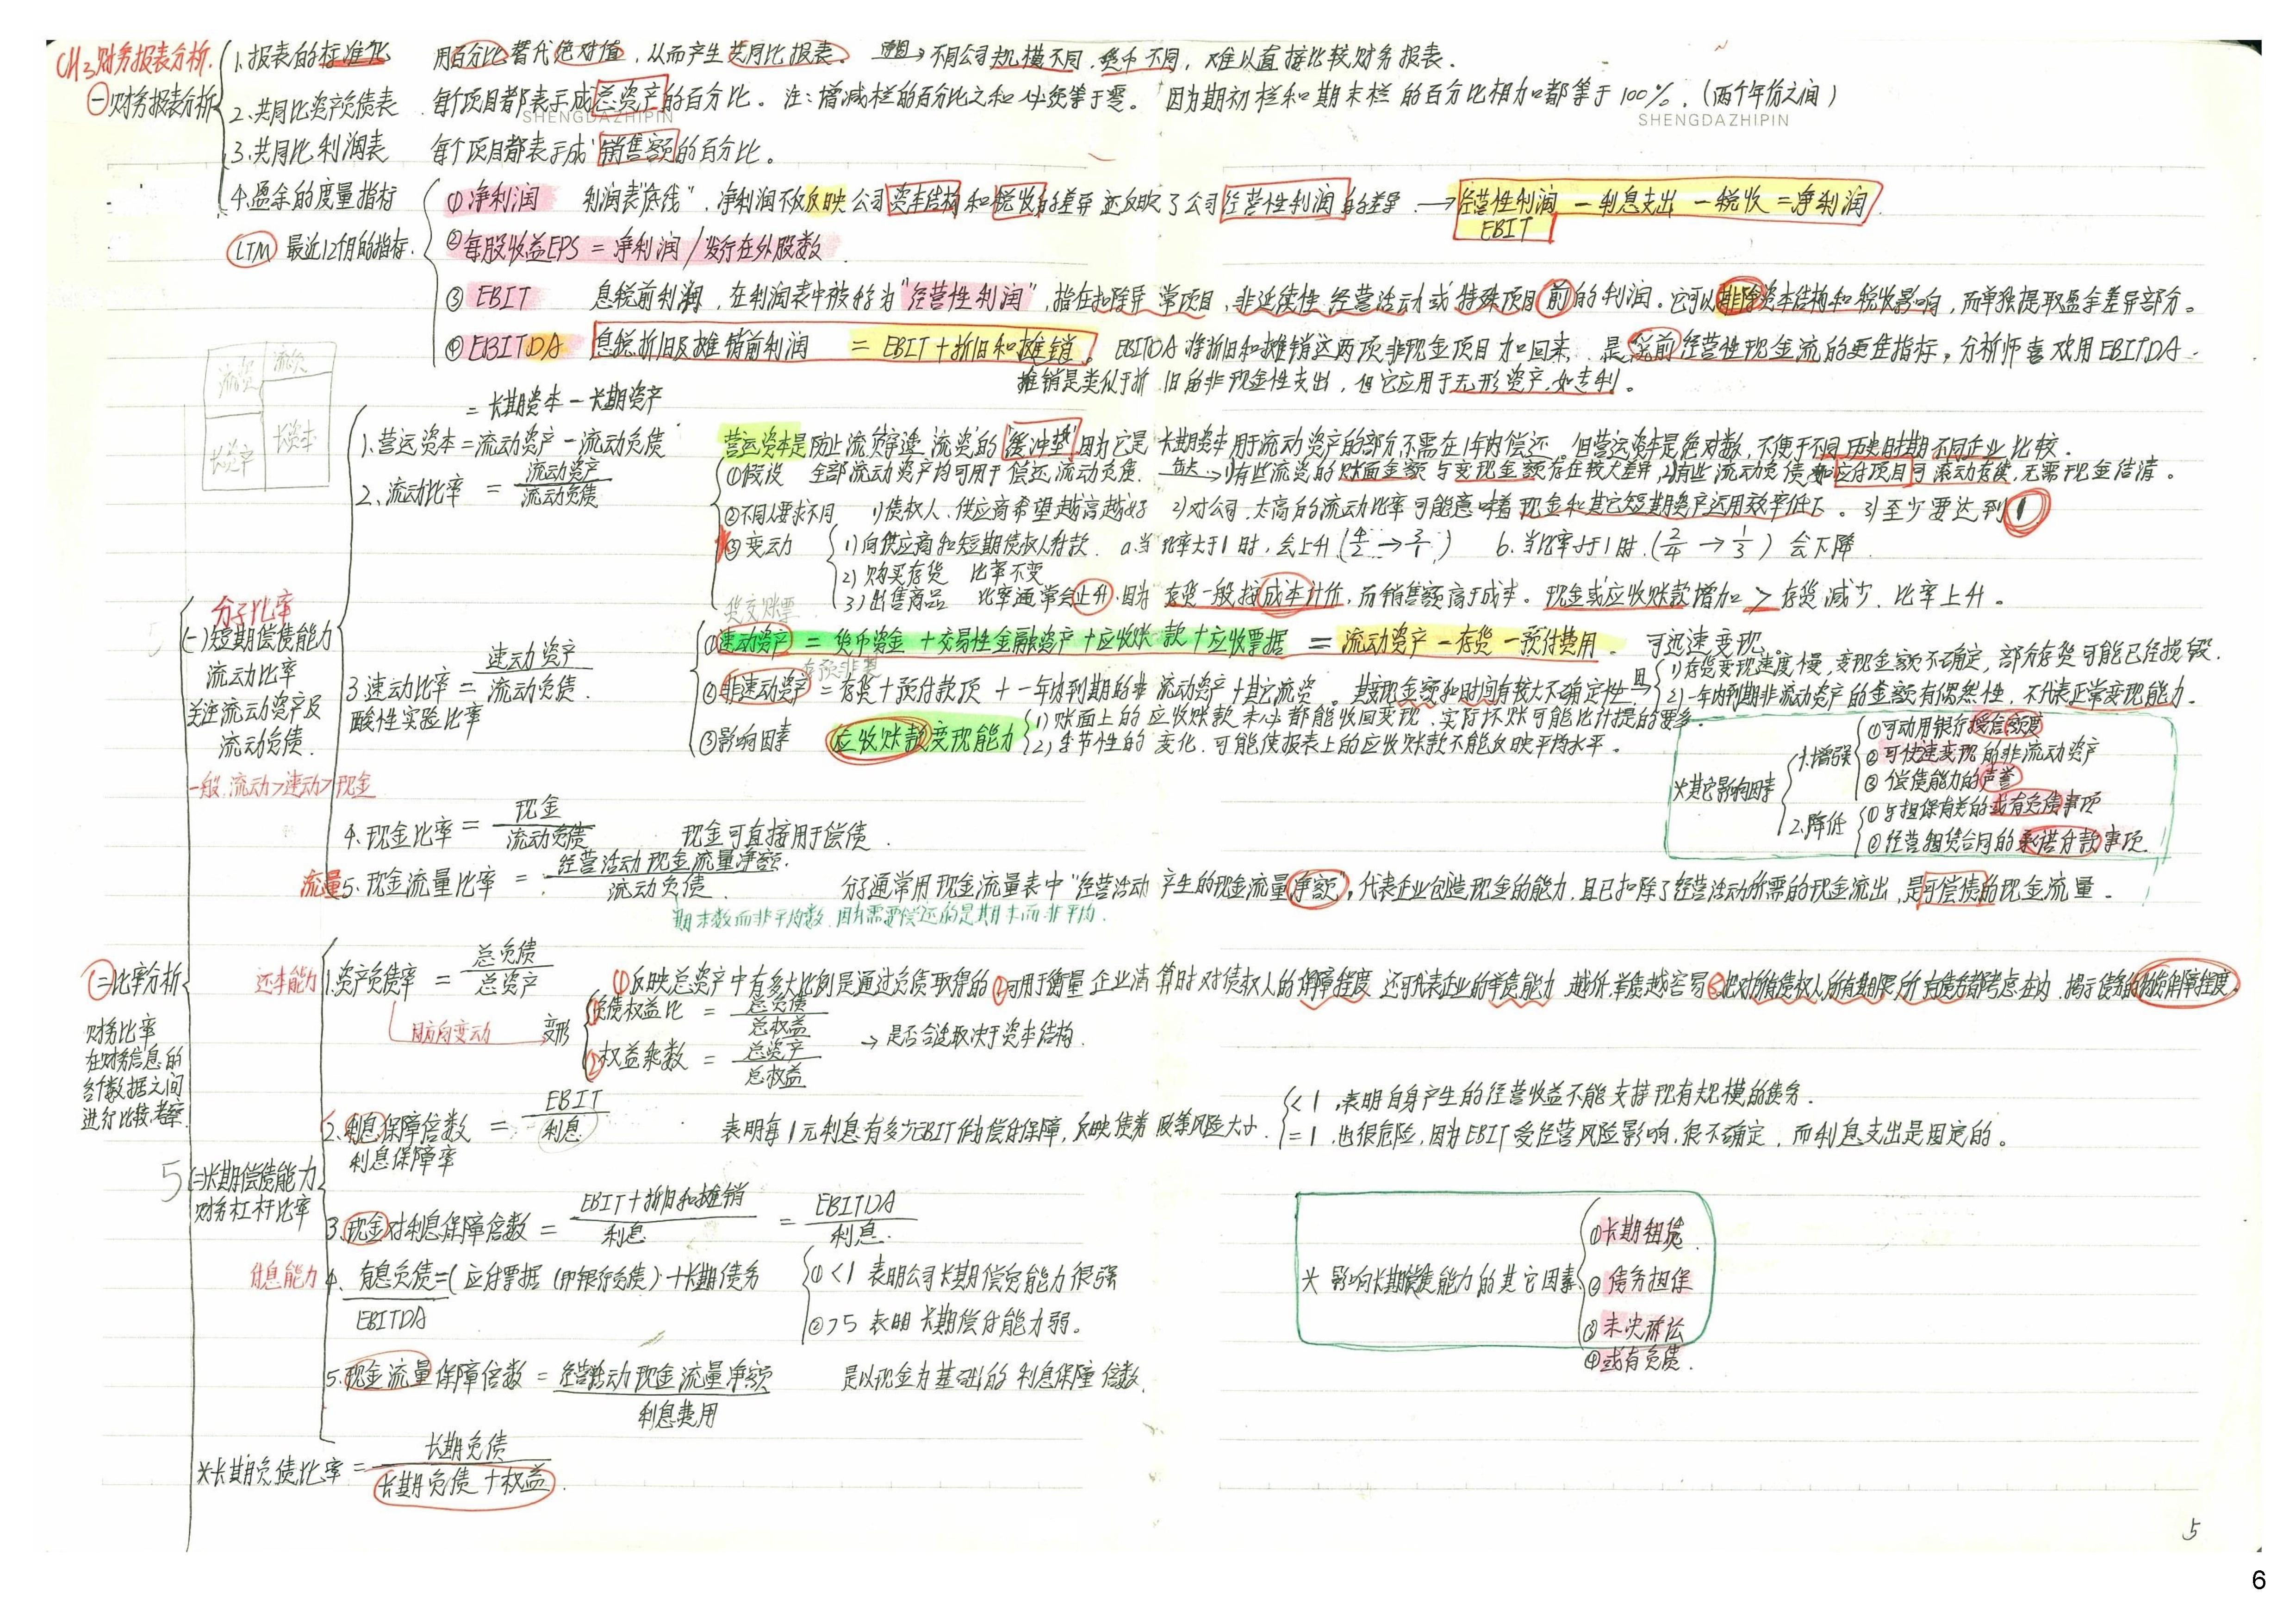 CH3 财务报表分析.
㊀财务报表分析
1.报表的标准化 用百分比替代绝对值，从而产生共同比报表。 原因→不同公司规模不同，货币不同，难以直接比较财务报表.
2.共同比资产负债表 每个项目都表示成总资产的百分比。注:增减栏的百分比之和必须等于零。因为期初栏和期末栏的百分比相加都等于100%.(两个年份之间)
SHENGDAZHIPIN SHENGDAZHIPIN
3.共同比利润表 每个项目都表示成销售额的百分比。
4.盈余的度量指标
LTM 最近12个月的指标.
①净利润 利润表"底线"，净利润不仅反映公司资本结构和税收的差异 还反映了公司经营性利润的差异 →经营性利润－利息支出－税收＝净利润
EBIT
②每股收益EPS = 净利润/发行在外股数
③ EBIT 息税前利润，在利润表中被称为"经营性利润"，指在扣除异常项目、非延续性经营活动或特殊项目前的利润。它可以排除资本结构和税收影响，而单独提取盈余差异部分。
④ EBITDA 息税折旧及摊销前利润 = EBIT+折旧和摊销。 EBITDA 将折旧和摊销这两项非现金项目加回来，是税前经营性现金流的更佳指标，分析师喜欢用EBITDA.
摊销是类似于折旧的非现金性支出，但它应用于无形资产，如专利。
流资 流负
长资产 长资本
=长期资本－长期资产
1.营运资本=流动资产－流动负债 营运资本是防止流负穿透流资的"缓冲垫"因为它是长期资本用于流动资产的部分不需在1年内偿还。但营运资本是绝对数，不便于不同历史时期不同企业比较.
2.流动比率 = 流动资产/流动负债
①假设 全部流动资产均可用于偿还流动负债. 缺点→1)有些流资的账面金额与变现金额存在较大差异 2)有些流动负债如应付项目可滚动存续，无需现金结清。
②不同人要求不同 1)债权人、供应商希望越高越好 2)对公司，太高的流动比率可能意味着现金和其它短期资产运用效率低下。 3)至少要达到1
③变动
1)向供应商和短期债权人付款. a.当比率大于1时，会上升(4/2→3/1) b.当比率小于1时.(2/4→1/3)会下降.
2)购买存货 比率不变
3)出售商品 比率通常会上升.因为存货一般按成本计价，而销售额高于成本。现金或应收账款增加 > 存货减少，比率上升。
货交账票
分子比率
㈠短期偿债能力
流动比率
关注流动资产及
流动负债.
一般.流动>速动>现金
3.速动比率 = 速动资产/流动负债.
酸性实验比率
①速动资产 = 货币资金+交易性金融资产+应收账款+应收票据 = 流动资产－存货－预付费用. 可迅速变现.
存预非其
②非速动资产 = 存货+预付款项+一年内到期的非流动资产+其它流资。其变现金额和时间有较大不确定性
因
1)存货变现速度慢，变现金额不确定，部分存货可能已经损毁.
2)一年内到期非流动资产的金额有偶然性，不代表正常变现能力.
③影响因素 应收账款变现能力
1)账面上的应收账款未必都能收回变现，实际坏账可能比计提的要多.
2)季节性的变化，可能使报表上的应收账款不能反映平均水平.
*其它影响因素
1.增强
①可动用银行授信额度
②可快速变现的非流动资产
③偿债能力的声誉
2.降低
①与担保有关的或有负债事项
②经营租赁合同的承诺付款事项.
4.现金比率 = 现金/流动负债 现金可直接用于偿债.
流量 5.现金流量比率 = 经营活动现金流量净额/流动负债. 分子通常用现金流量表中"经营活动产生的现金流量净额"，代表企业创造现金的能力，且已扣除了经营活动所需的现金流出，是可偿债的现金流量.
期末数而非平均数，因为需要偿还的是期末而非平均.
㊁比率分析
财务比率
在财务信息的
各个数据之间
进行比较,考察.
还本能力 1.资产负债率 = 总负债/总资产 ①反映总资产中有多大比例是通过负债取得的②可用于衡量企业清算时对债权人的保障程度 还可代表企业的举债能力 越低,举债越容易③把对所有债权人所有期限所有债务都考虑在内，揭示债务的物质保障程度.
同方向变动 变形
①负债权益比 = 总负债/总权益
②权益乘数 = 总资产/总权益
→是否合适取决于资本结构.
2.利息保障倍数 = EBIT/利息
利息保障率
表明每1元利息有多少EBIT作为偿付保障，反映债务政策风险大小.
<1 ,表明自身产生的经营收益不能支持现有规模的债务.
=1 也很危险,因为EBIT受经营风险影响,很不确定，而利息支出是固定的。
5
㈡长期偿债能力
财务杠杆比率
3.现金对利息保障倍数 = EBIT+折旧和摊销/利息 = EBITDA/利息.
付息能力 4. 有息负债=(应付票据(即银行负债)+长期债务
EBITDA
①<1 表明公司长期偿负能力很强
②>5 表明长期偿付能力弱。
* 影响长期偿债能力的其它因素
①长期租赁.
②债务担保
③未决诉讼
④或有负债.
5.现金流量保障倍数 = 经营活动现金流量净额/利息费用 是以现金为基础的利息保障倍数.
*长期负债比率 = 长期负债/长期负债+权益.
5
6